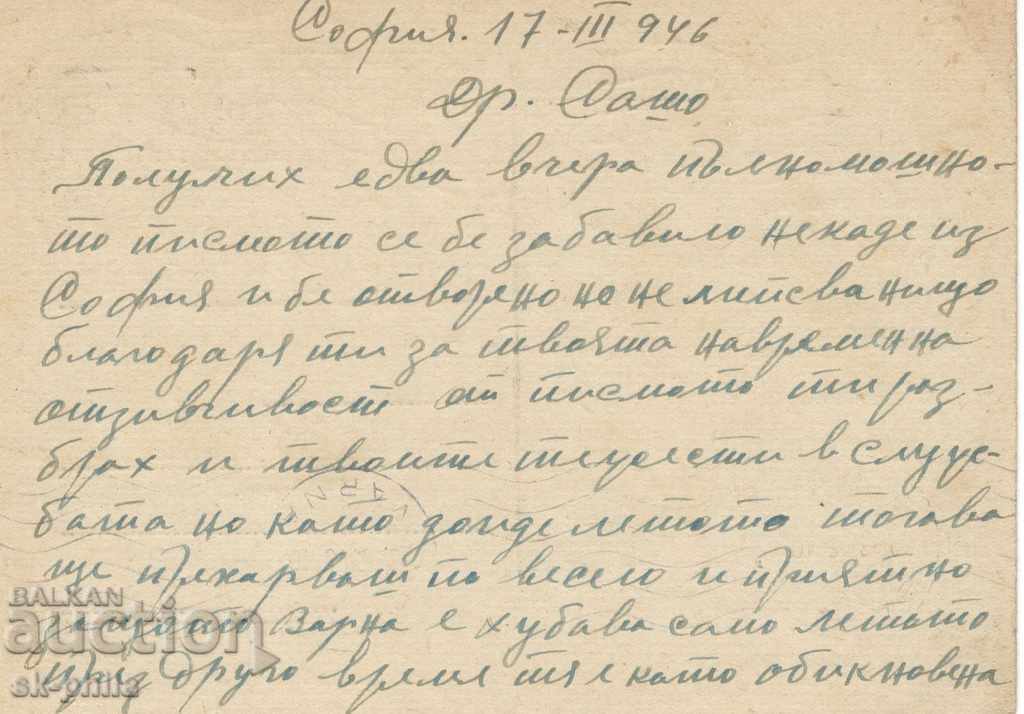 София. 17-III 946
Др. Сашо
Получих едва вчера пълномошно-
то писмото се бе забавило некаде из
София и бе отворено но не липсва нищо
благодаря ти за твоята навременна
отзивчивост от писмото ти раз-
брах и твоите тежести в служ-
бата но като дойде летото тогава
ще прекарваш по весело и приятно
защото Варна е хубава само летото
през друго време тя е като обикновена
BALKAN
auction
sk-phila